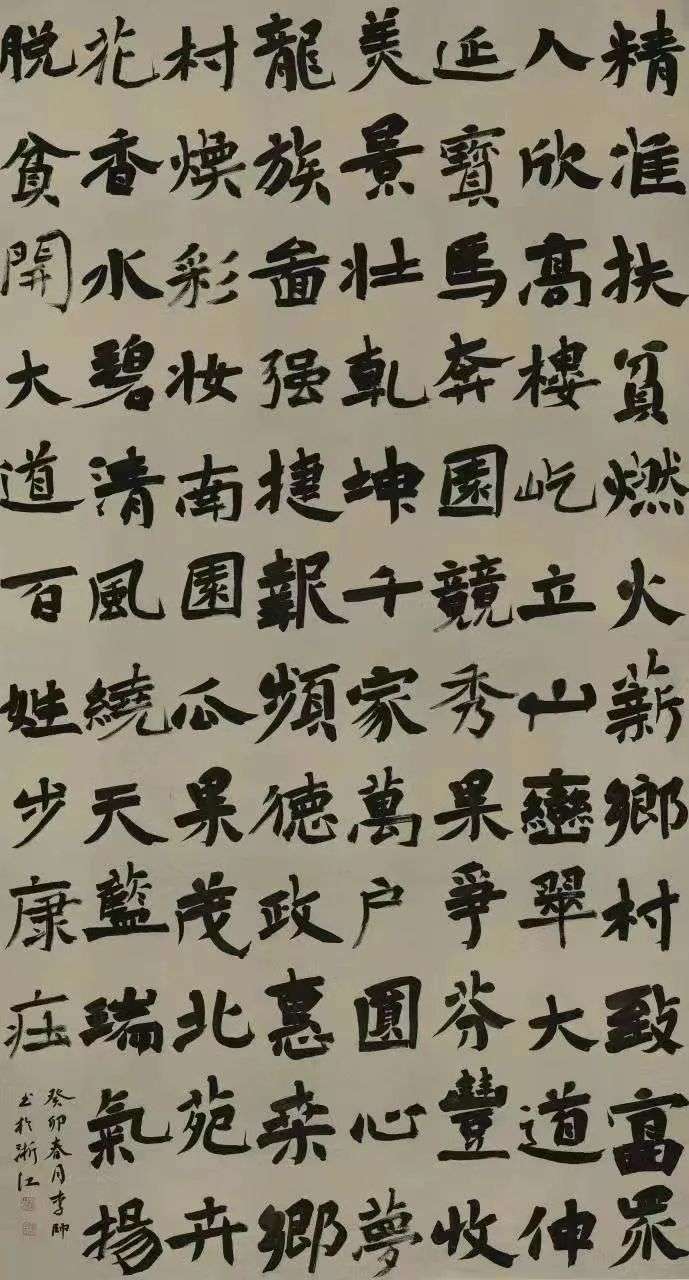 精准扶貧燃火薪鄉村致富眾
人欣高樓屹立山巒翠大道伸
延寶馬奔園競秀果爭芬豐收
美景壯乾坤千家萬户圓心夢
龍族畜强捷報頻德政惠桑鄉
村煥彩妆南園瓜果茂北苑卉
花香水碧清風繞天藍瑞氣揚
脱貧開大道百姓步康莊
癸卯春月李帥
书於浙江